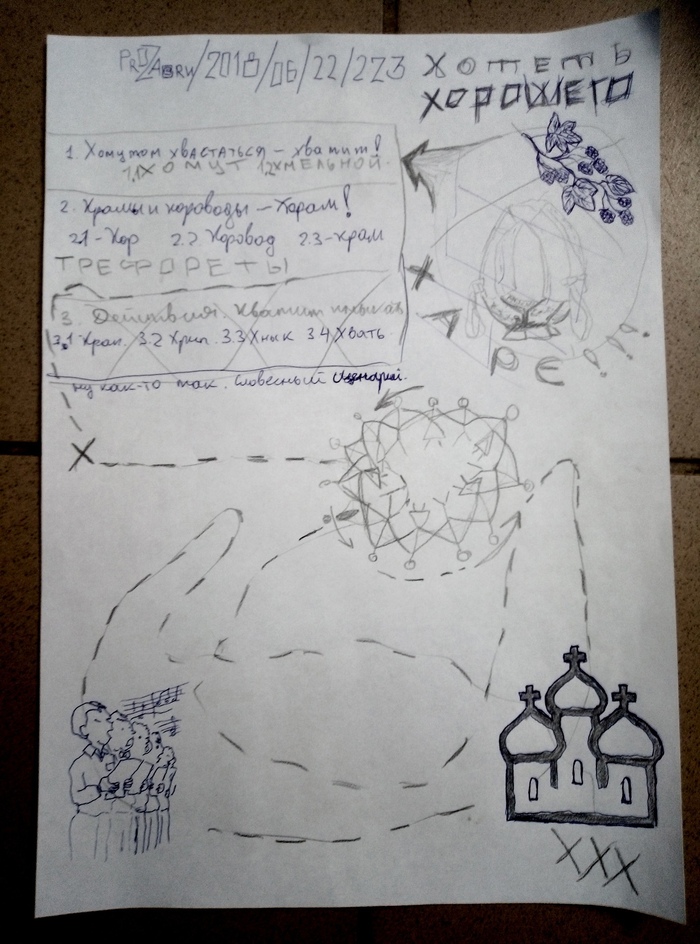 2018/06/22/223
Хотеть
хорошего
1. Хомутом хвастаться – хватит!
1.1 ХОМУТ 1.2 ХМЕЛЬНОЙ.
2. Храмы и хороводы – Харам!
2.1 - Хор 2.2 Хоровод 2.3 - храм
ТРЕФОРЕТЫ
3. Действия. Хватит
3.1 Храп. 3.2 Хрип. 3.3 Хнык 3.4 Хвать
ну как-то так. Словесный сценарий.
Х
ХХХ